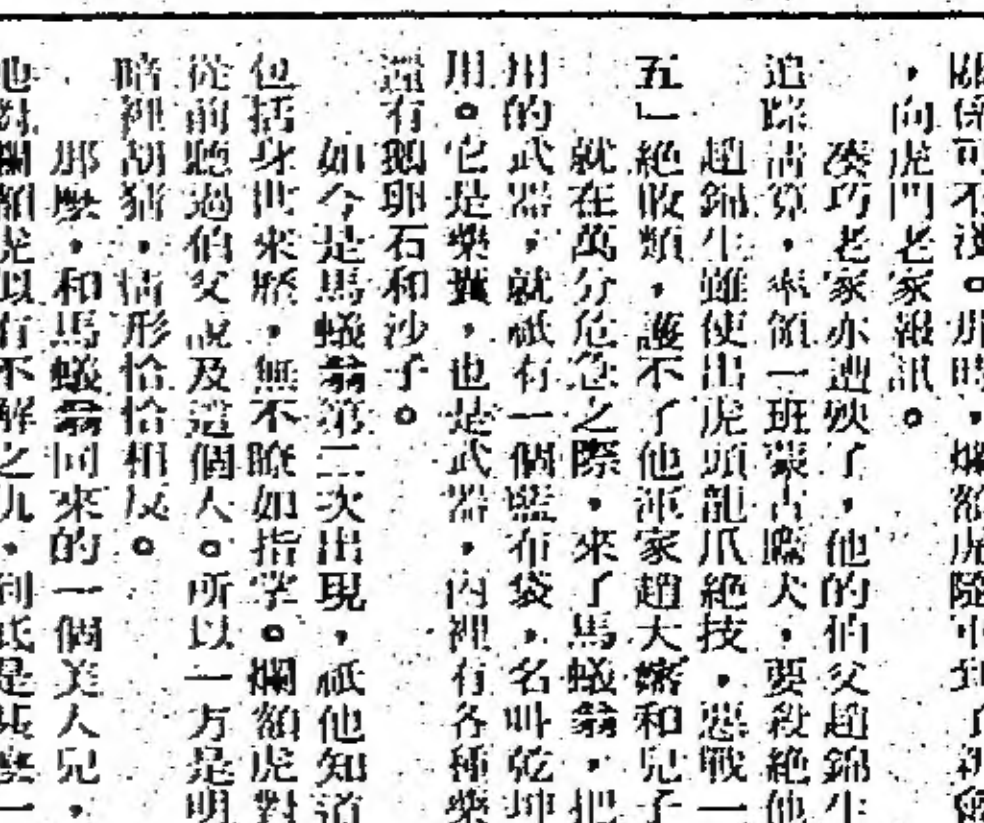 關係可不淺。那時,爛額虎隨
,向虎門老家報訊。
湊巧老家亦遭殃了,他的伯父趙錦生
追踪清算,率領一班蒙古鷹犬,要殺絕他
趙錦生雖使出虎頭龍爪絕技,惡戰一
五」絕敗類,護不了他渾家趙大嬸和兒子
就在萬分危急之際,來了馬蟻翁,把
用的武器,就祇有一個藍布袋,名叫乾坤
用。它是藥囊,也是武器,內裡有各種藥
還有鵝卵石和沙子。
如今是馬蟻翁第二次出現,祇他知道
包括身世來歷,無不瞭如指掌。爛額虎對
從前聽過伯父說及這個人。所以一方是明
暗裡胡猜,情形恰恰相反。
那麼,和馬蟻翁同來的一個美人兒,
他對爛額虎以有不解之仇,到底是甚麼一